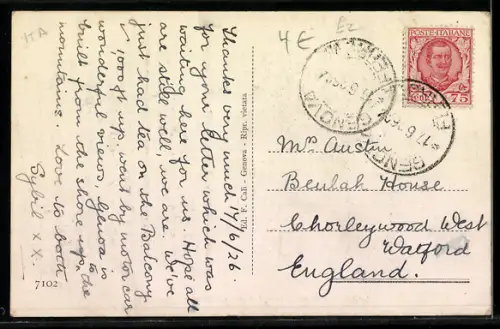 ITA
4E
E2
Thanks very much 17/6/26.
for your letter which was
waiting here for us. Hope all
are still well, we are. We've
just had tea on the Balcony
1,000 ft up, went by motor car
wonderful views, Genoa is
built from the shore up to the
mountains. Love to both
Sybil x x.
7102
Ed. F. Cali - Genova - Ripr. vietata
POSTE ITALIANE
75
GENOVA
GENOVA
Mrs Austin
Beulah House
Chorleywood West
Watford
England.